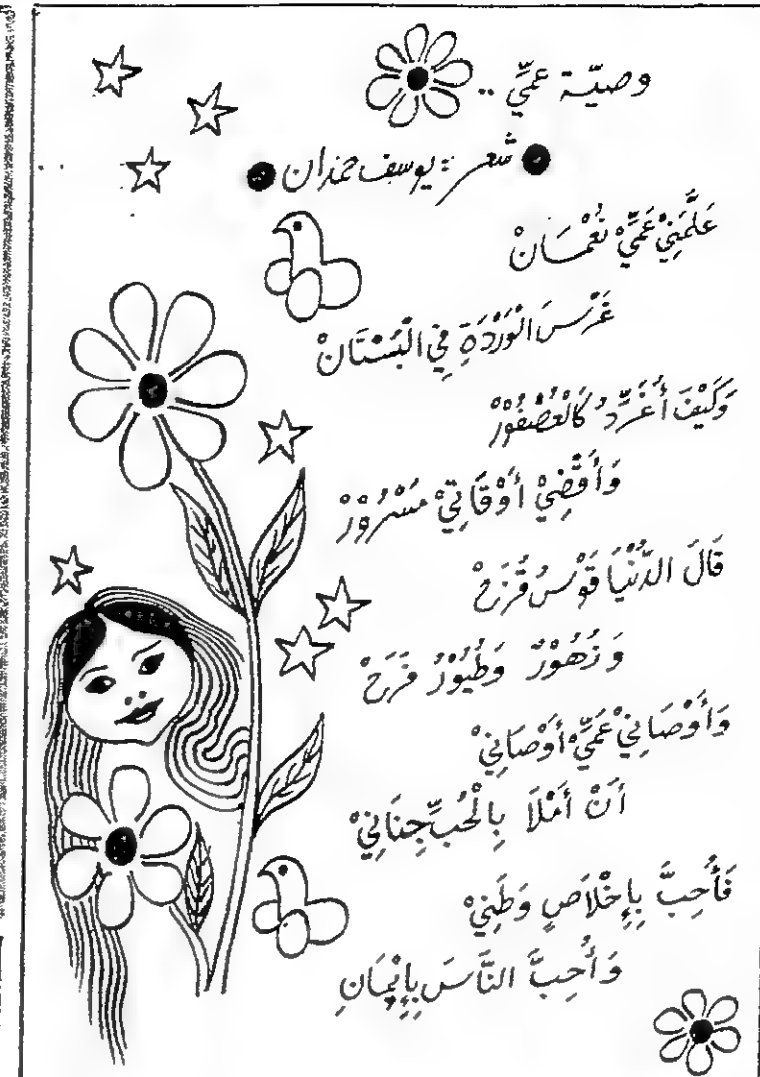 وصيّة عمّي ..
شعر : يوسف حمدان
عَلَّمَنِيْ عَمِّيْ نُعْمَانْ
غَرْسَ الْوَرْدَةِ فِي الْبُسْتَانْ
وَكَيْفَ أُغَرِّدُ كَالْعُصْفُوْرْ
وَأُقَضِّيْ أَوْقَاتِيْ مَسْرُوْرْ
قَالَ الدُّنْيَا قَوْسُ قُزَحْ
وَزُهُوْرٌ وَطُيُوْرُ فَرَحْ
وَأَوْصَانِيْ عَمِّيْ أَوْصَانِيْ
أَنْ أَمْلَأَ بِالْحُبِّ جِنَانِيْ
فَأُحِبَّ بِإِخْلَاصٍ وَطَنِيْ
وَأُحِبَّ النَّاسَ بِإِيْمَانِ